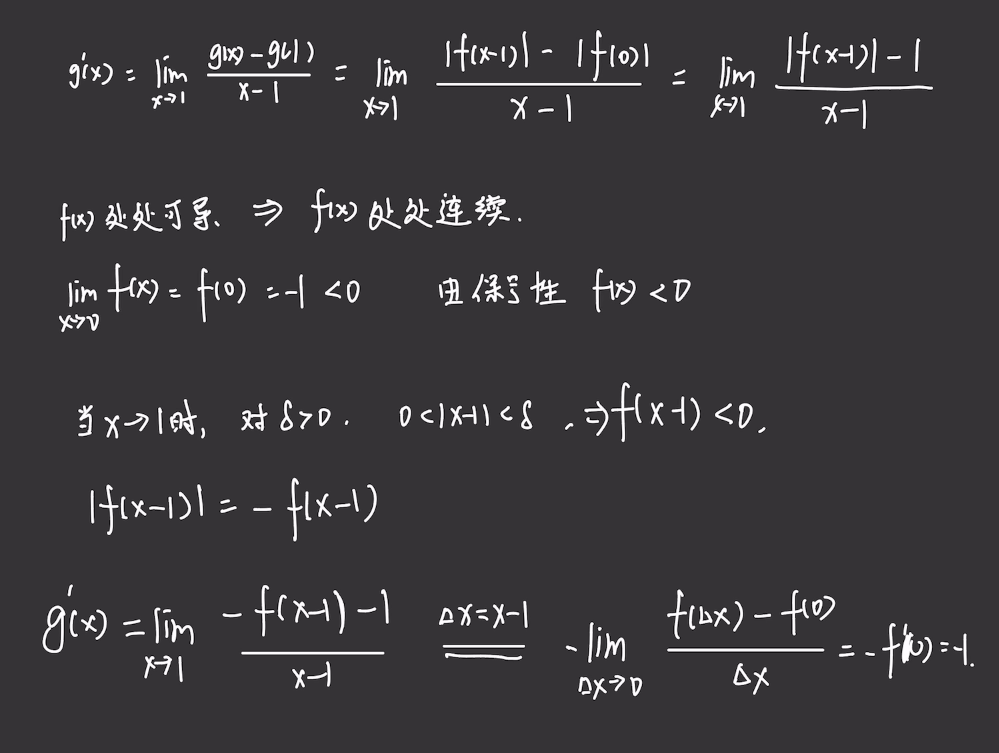 g'(x) = lim_{x→1} \frac{g(x) - g(1)}{x - 1} = lim_{x→1} \frac{|f(x-1)| - |f(0)|}{x - 1} = lim_{x→1} \frac{|f(x-1)| - 1}{x - 1}
f(x) 处处可导、 ⇒ f(x) 处处连续.
lim_{x→0} f(x) = f(0) = -1 < 0 由保号性 f(x) < 0
当 x→1时, 对 δ>0. 0<|x-1|<δ , ⇒ f(x-1) < 0,
|f(x-1)| = - f(x-1)
g'(x) = lim_{x→1} \frac{-f(x-1) - 1}{x-1} \xlongequal{Δx=x-1} - lim_{Δx→0} \frac{f(Δx) - f(0)}{Δx} = -f'(0) = -1.